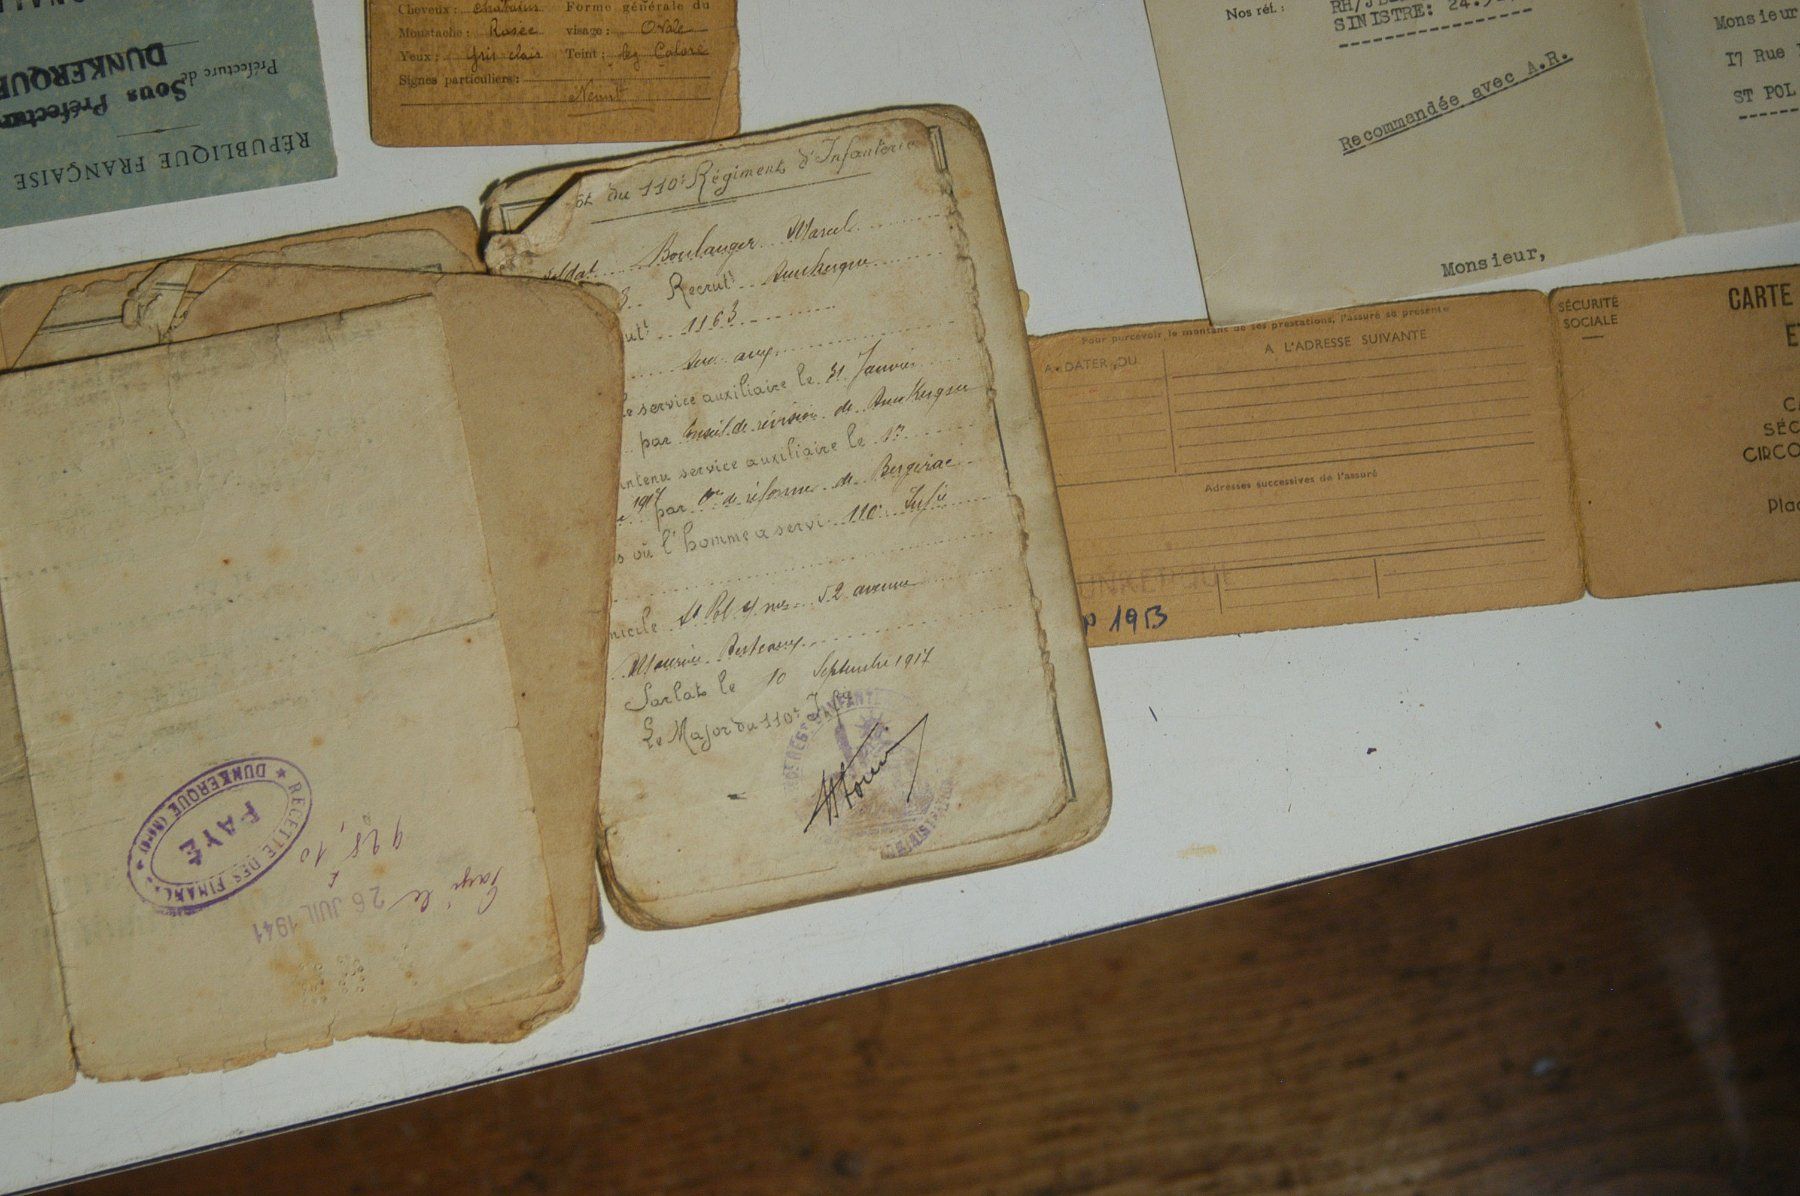 RÉPUBLIQUE FRANÇAISE
Préfecture de
Sous Préfecture
DUNKERQUE
Cheveux: Châtain Forme générale du
Moustache: Rasée visage: Ovale
Yeux: Gris clair Teint: leg Coloré
Signes particuliers:
Néant
Nos réf.:
SINISTRE:
Recommandée avec A.R.
Monsieur,
Monsieur
17 Rue
ST POL
du 110e Régiment d'Infanterie
Soldat Boulanger Marcel
3 Recrut Dunkerque
1163
service auxiliaire le 31 Janvier
par Conseil de révision de Dunkerque
service auxiliaire le
1917 par de réforme de Bergerac
où l'homme a servi 110e Infie
St Pol s/ mer 52 avenue
Maurice Berteaux
Sarlat le 10 Septembre 1917
Le Major du 110e Infie
RECETTE DES FINANC
DUNKERQUE (NORD)
PAYÉ
925,10
Payé le 26 JUIL 1941
Pour percevoir le montant de ses prestations, l'assuré se présente
A DATER DU
A L'ADRESSE SUIVANTE
Adresses successives de l'assuré
DUNKERQUE
1953
SÉCURITÉ
SOCIALE
CARTE